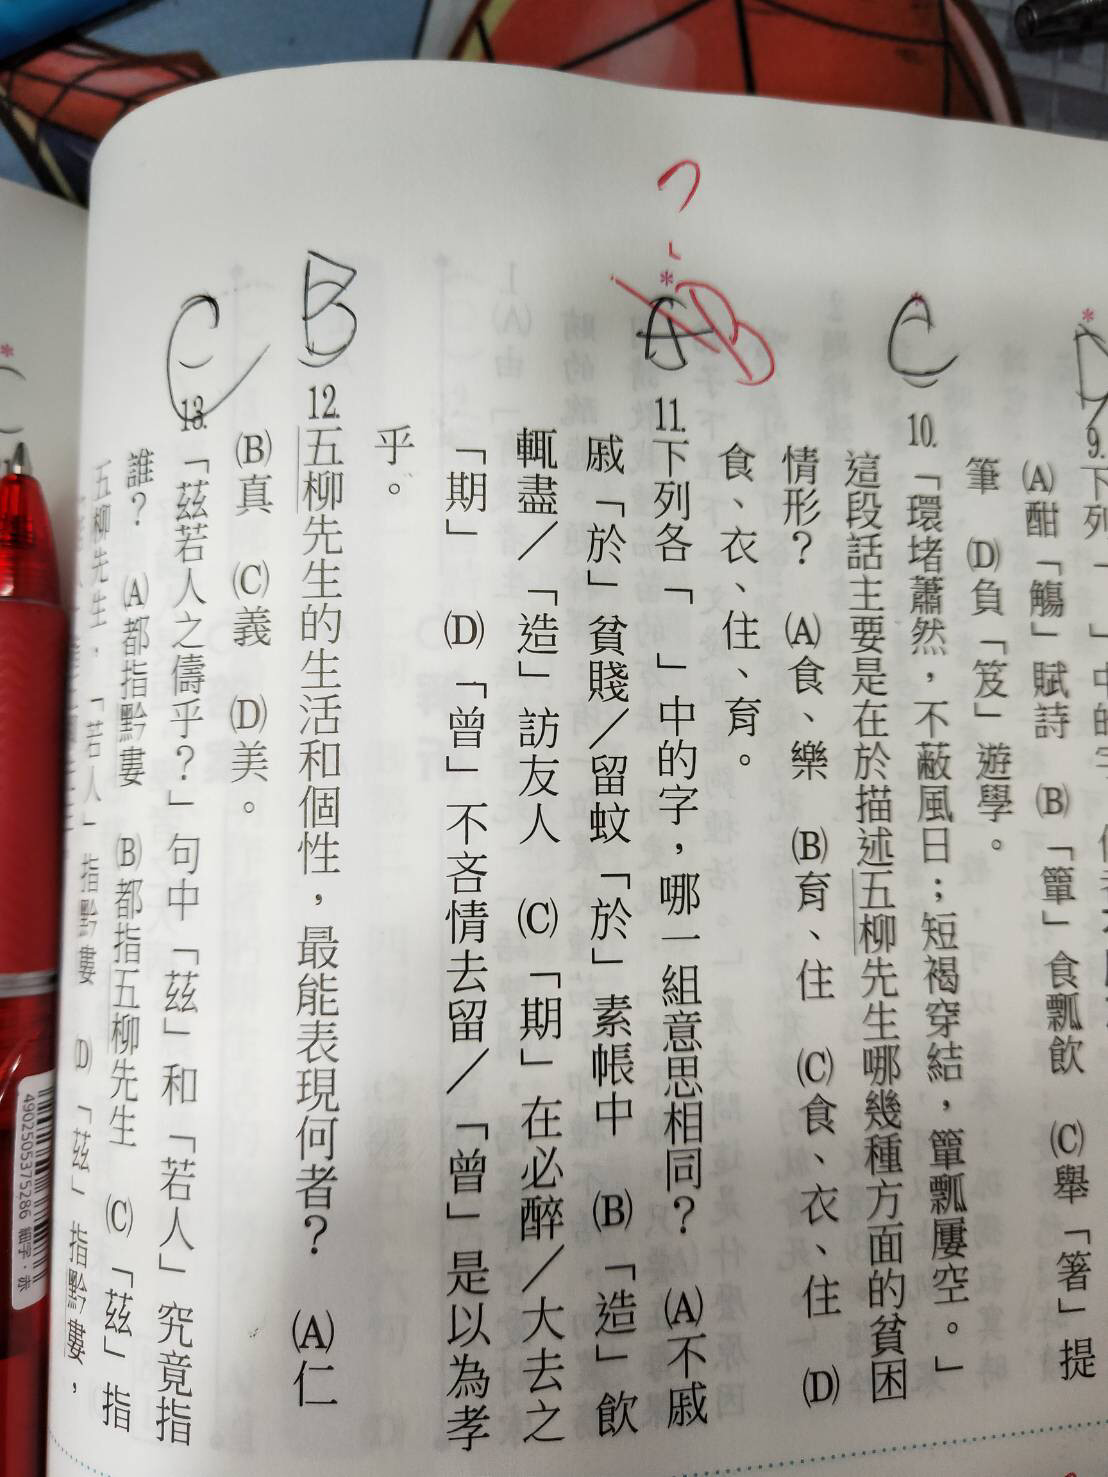 9.下列「
(A)酣「觴」賦詩 (B)「簞」食瓢飲 (C)舉「箸」提
筆 (D)負「笈」遊學。
10.「環堵蕭然，不蔽風日；短褐穿結，簞瓢屢空。」
這段話主要是在於描述五柳先生哪幾種方面的貧困
情形？ (A)食、樂 (B)育、住 (C)食、衣、住 (D)
食、衣、住、育。
11.下列各「 」中的字，哪一組意思相同？ (A)不戚
戚「於」貧賤／留蚊「於」素帳中 (B)「造」飲
輒盡／「造」訪友人 (C)「期」在必醉／大去之
「期」 (D)「曾」不吝情去留／「曾」是以為孝
乎。
12.五柳先生的生活和個性，最能表現何者？ (A)仁
(B)真 (C)義 (D)美。
13.「茲若人之儔乎？」句中「茲」和「若人」究竟指
誰？ (A)都指黔婁 (B)都指五柳先生 (C)「茲」指
五柳先生，「若人」指黔婁 (D)「茲」指黔婁，
C
A
B
B
C
4902505375286 細字・赤